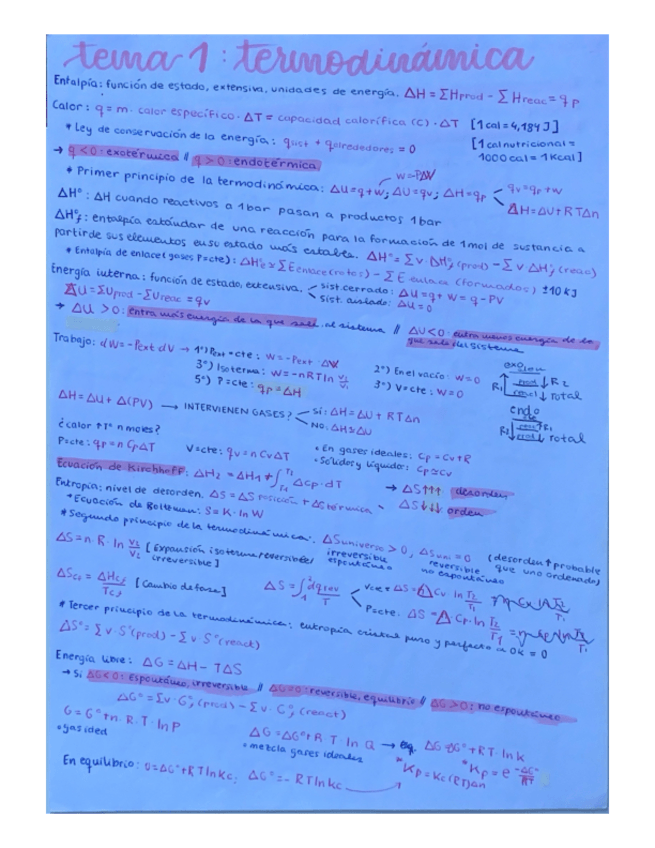 tema 1: termodinámica
Entalpía: función de estado, extensiva, unidades de energía. ΔH = ΣHprod - ΣHreac = qp
Calor: q = m · calor específico · ΔT = capacidad calorífica (C) · ΔT [1cal = 4,184 J]
* Ley de conservación de la energía: qsist + qalrededores = 0 [1 cal nutricional = 1000 cal = 1 Kcal]
→ q < 0: exotérmica // q > 0: endotérmica
* Primer principio de la termodinámica: ΔU = q + w; ΔU = qv; ΔH = qp
w = -PΔV
qv = qp + w
ΔH = ΔU + RTΔn
ΔHº: ΔH cuando reactivos a 1 bar pasan a productos 1 bar
ΔHºf: entalpía estándar de una reacción para la formación de 1 mol de sustancia a
partir de sus elementos en su estado más estable. ΔHº = Σν·ΔHºf (prod) - Σν ΔHºf (reac)
* Entalpía de enlace (gases P=cte): ΣE enlace (rotos) - ΣE enlace (formados) ±10 KJ
Energía interna: función de estado, extensiva.
sist. cerrado: ΔU = q + W = q - PV
sist. aislado: ΔU = 0
ΔU = ΣUprod - ΣUreac = qv
→ ΔU > 0: entra más energía de la que sale al sistema // ΔU < 0: entra menos energía de la
que sale del sistema
Trabajo: dW = -Pext dV → 1º) Pext = cte: W = -Pext · ΔV 2º) En el vacío: W = 0
3º) Isoterma: W = -nRT ln V2/V1 3º) V = cte: W = 0
5º) P = cte: qp = ΔH
exo
R1 R2 total
endo
R1 total
ΔH = ΔU + Δ(PV) → INTERVIENEN GASES?
Sí: ΔH = ΔU + RTΔn
NO: ΔH ≈ ΔU
¿calor ↑Tº n moles?
P=cte: qp = n CpΔT V=cte: qv = n CvΔT
• En gases ideales: Cp = Cv + R
• Sólidos y líquido: Cp ≈ Cv
Ecuación de Kirchhoff: ΔH2 = ΔH1 + ∫ ΔCp · dT
→ ΔS↑↑↑ desorden
ΔS↓↓↓ orden
Entropía: nivel de desorden. ΔS = ΔS posición + ΔS térmica
* Ecuación de Boltzman: S = K · ln W
* Segundo principio de la termodinámica. ΔSuniverso > 0, ΔSuni = 0 (desorden ↑ probable
que uno ordenado)
irreversible espontáneo
reversible no espontáneo
ΔS = n · R · ln V2/V1 [Expansión isoterma reversible/
irreversible]
[Cambio de fase] ΔS = ∫ dqrev/T
V cte = ΔS = Cv · ln T2/T1
P cte. ΔS = Cp · ln T2/T1
* Tercer principio de la termodinámica: entropía cristal puro y perfecto a 0K = 0
ΔSº = Σν · Sº(prod) - Σν Sº(react)
Energía libre: ΔG = ΔH - TΔS
→ Si ΔG < 0: Espontáneo, irreversible // ΔG = 0: reversible, equilibrio // ΔG > 0: no espontáneo
ΔGº = Σν · Gºf (prod) - Σν · Gºf (react)
G = Gº + n · R · T · ln P
• gas ideal
ΔG = ΔGº + R · T · ln Q → eq.
• mezcla gases ideales
Kp = Kc(RT)Δn
En equilibrio: 0 = ΔGº + RT ln Kc; ΔGº = - RT ln Kc